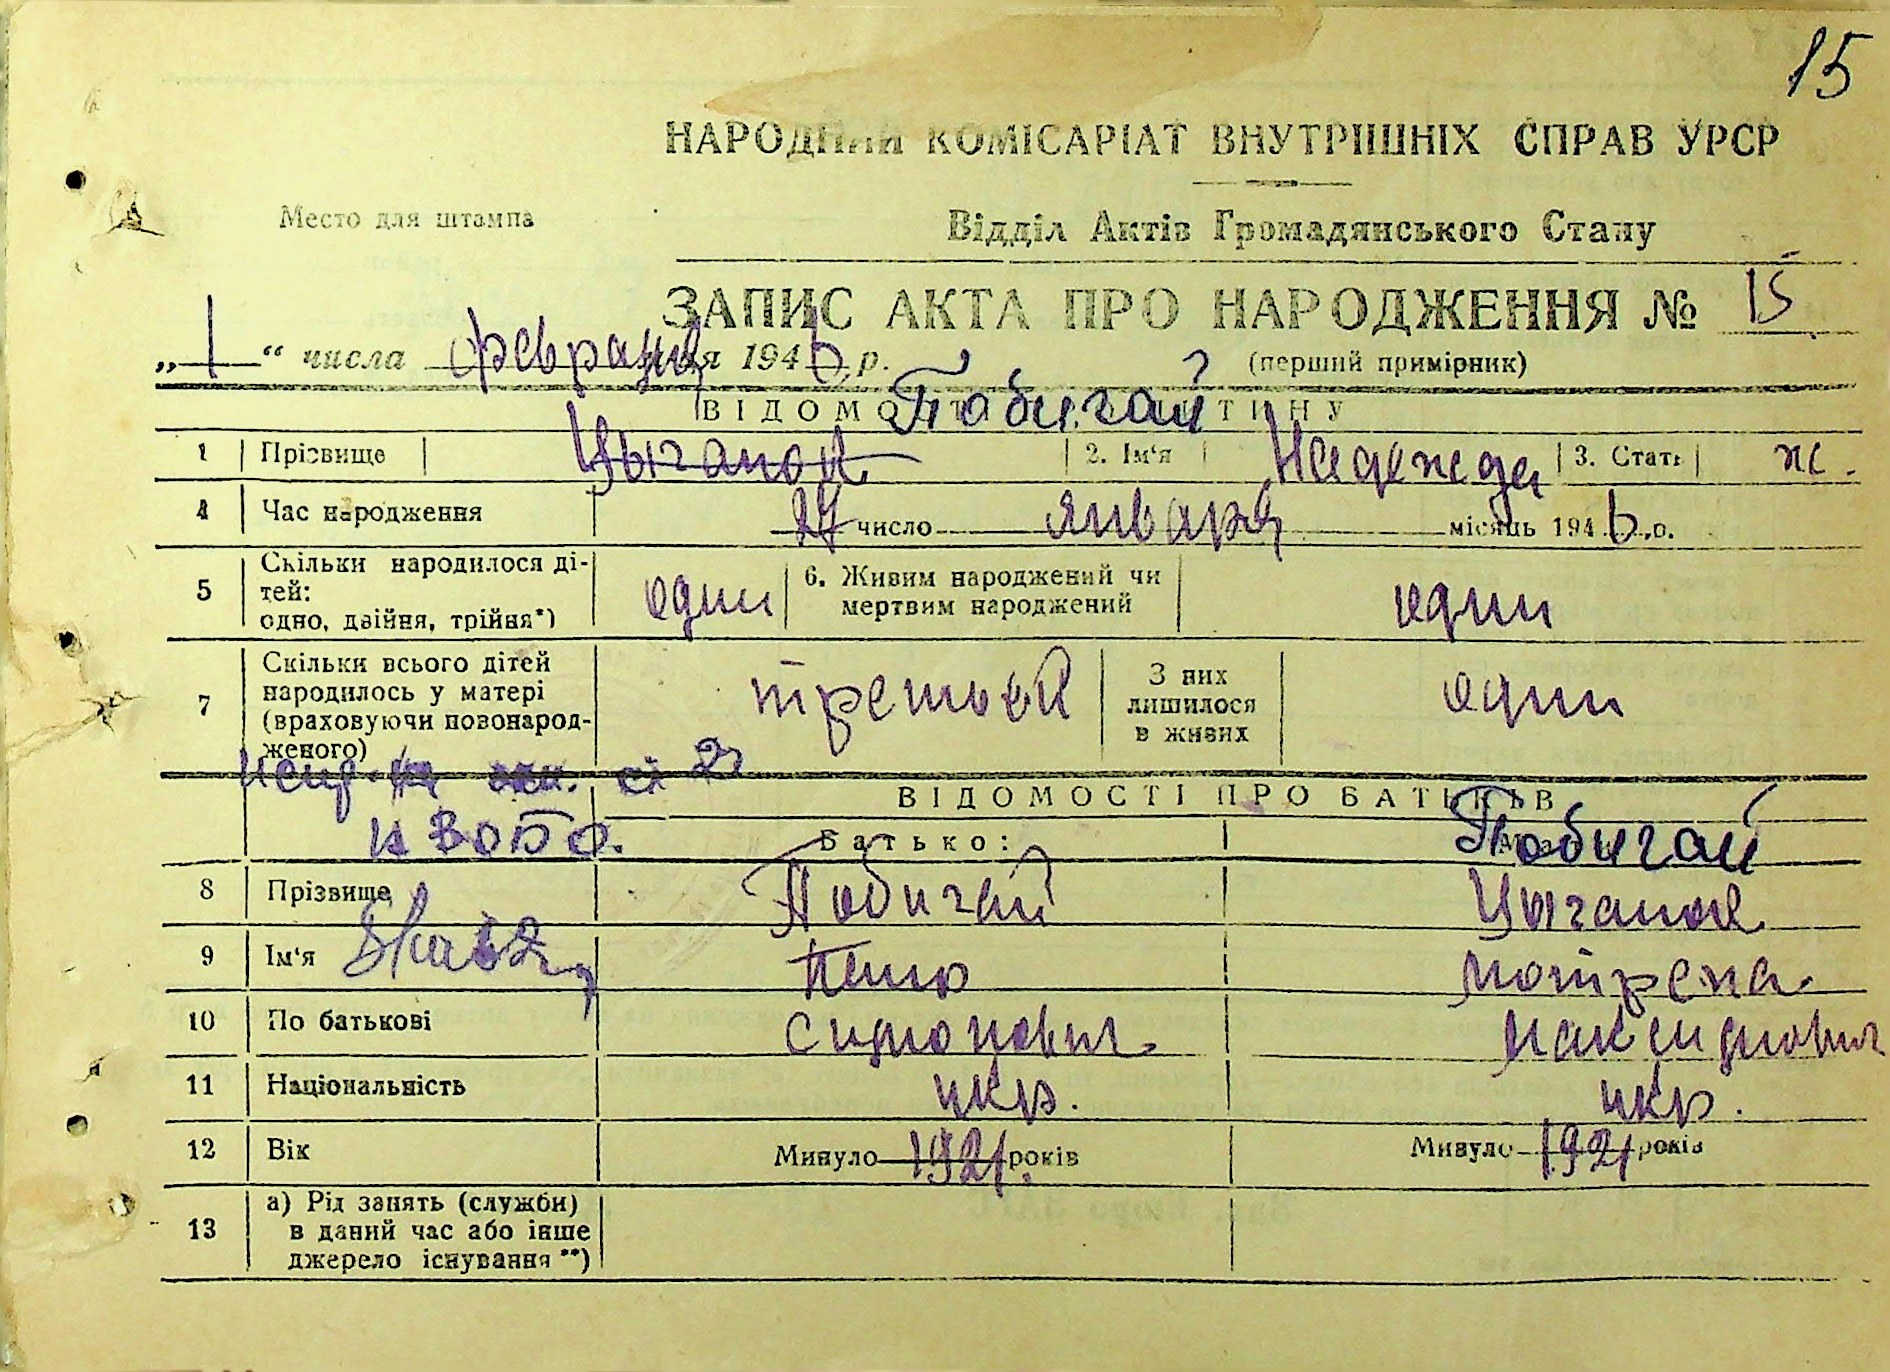 15
НАРОДНИЙ КОМІСАРІАТ ВНУТРІШНІХ СПРАВ УРСР
Место для штампа
Відділ Актів Громадянського Стану
ЗАПИС АКТА ПРО НАРОДЖЕННЯ № 15
„ 1 “ числа февраля 1946 р. (перший примірник)
Побигай
1 Прізвище Цыганок 2. Ім‘я Надежда 3. Стать ж.
4 Час народження 27 число января місяць 1946 р.
5 Скільки народилося ді-
тей:
одно, двійня, трійня*) один 6. Живим народжений чи
мертвим народжений один
7 Скільки всього дітей
народилось у матері
(враховуючи новонарод-
женого) третьей З них
лишилося
в живих один
ВІДОМОСТІ ПРО БАТЬКІВ
Батько: Побигай
8 Прізвище Побигай Цыганок
9 Ім‘я Петро Мотрена
10 По батькові Симонович Максимович
11 Національність укр. укр.
12 Вік Минуло 1921 років Минуло 1921 років
13 а) Рід занять (служби)
в даний час або інше
джерело існування **)